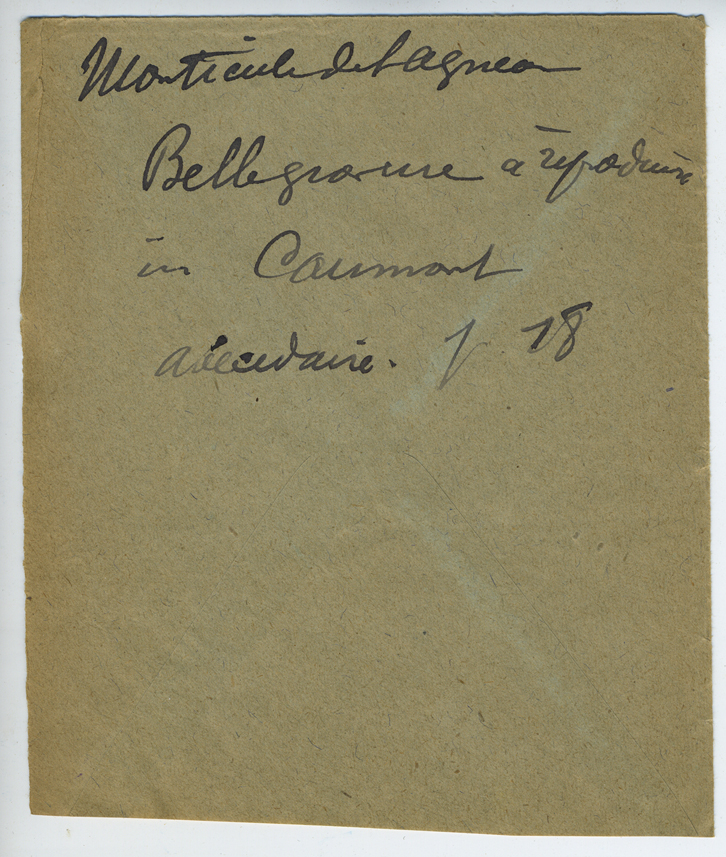 Monticule de l'agneau
Belle gravure à reproduire
in Caumont
abecedaire. p 18